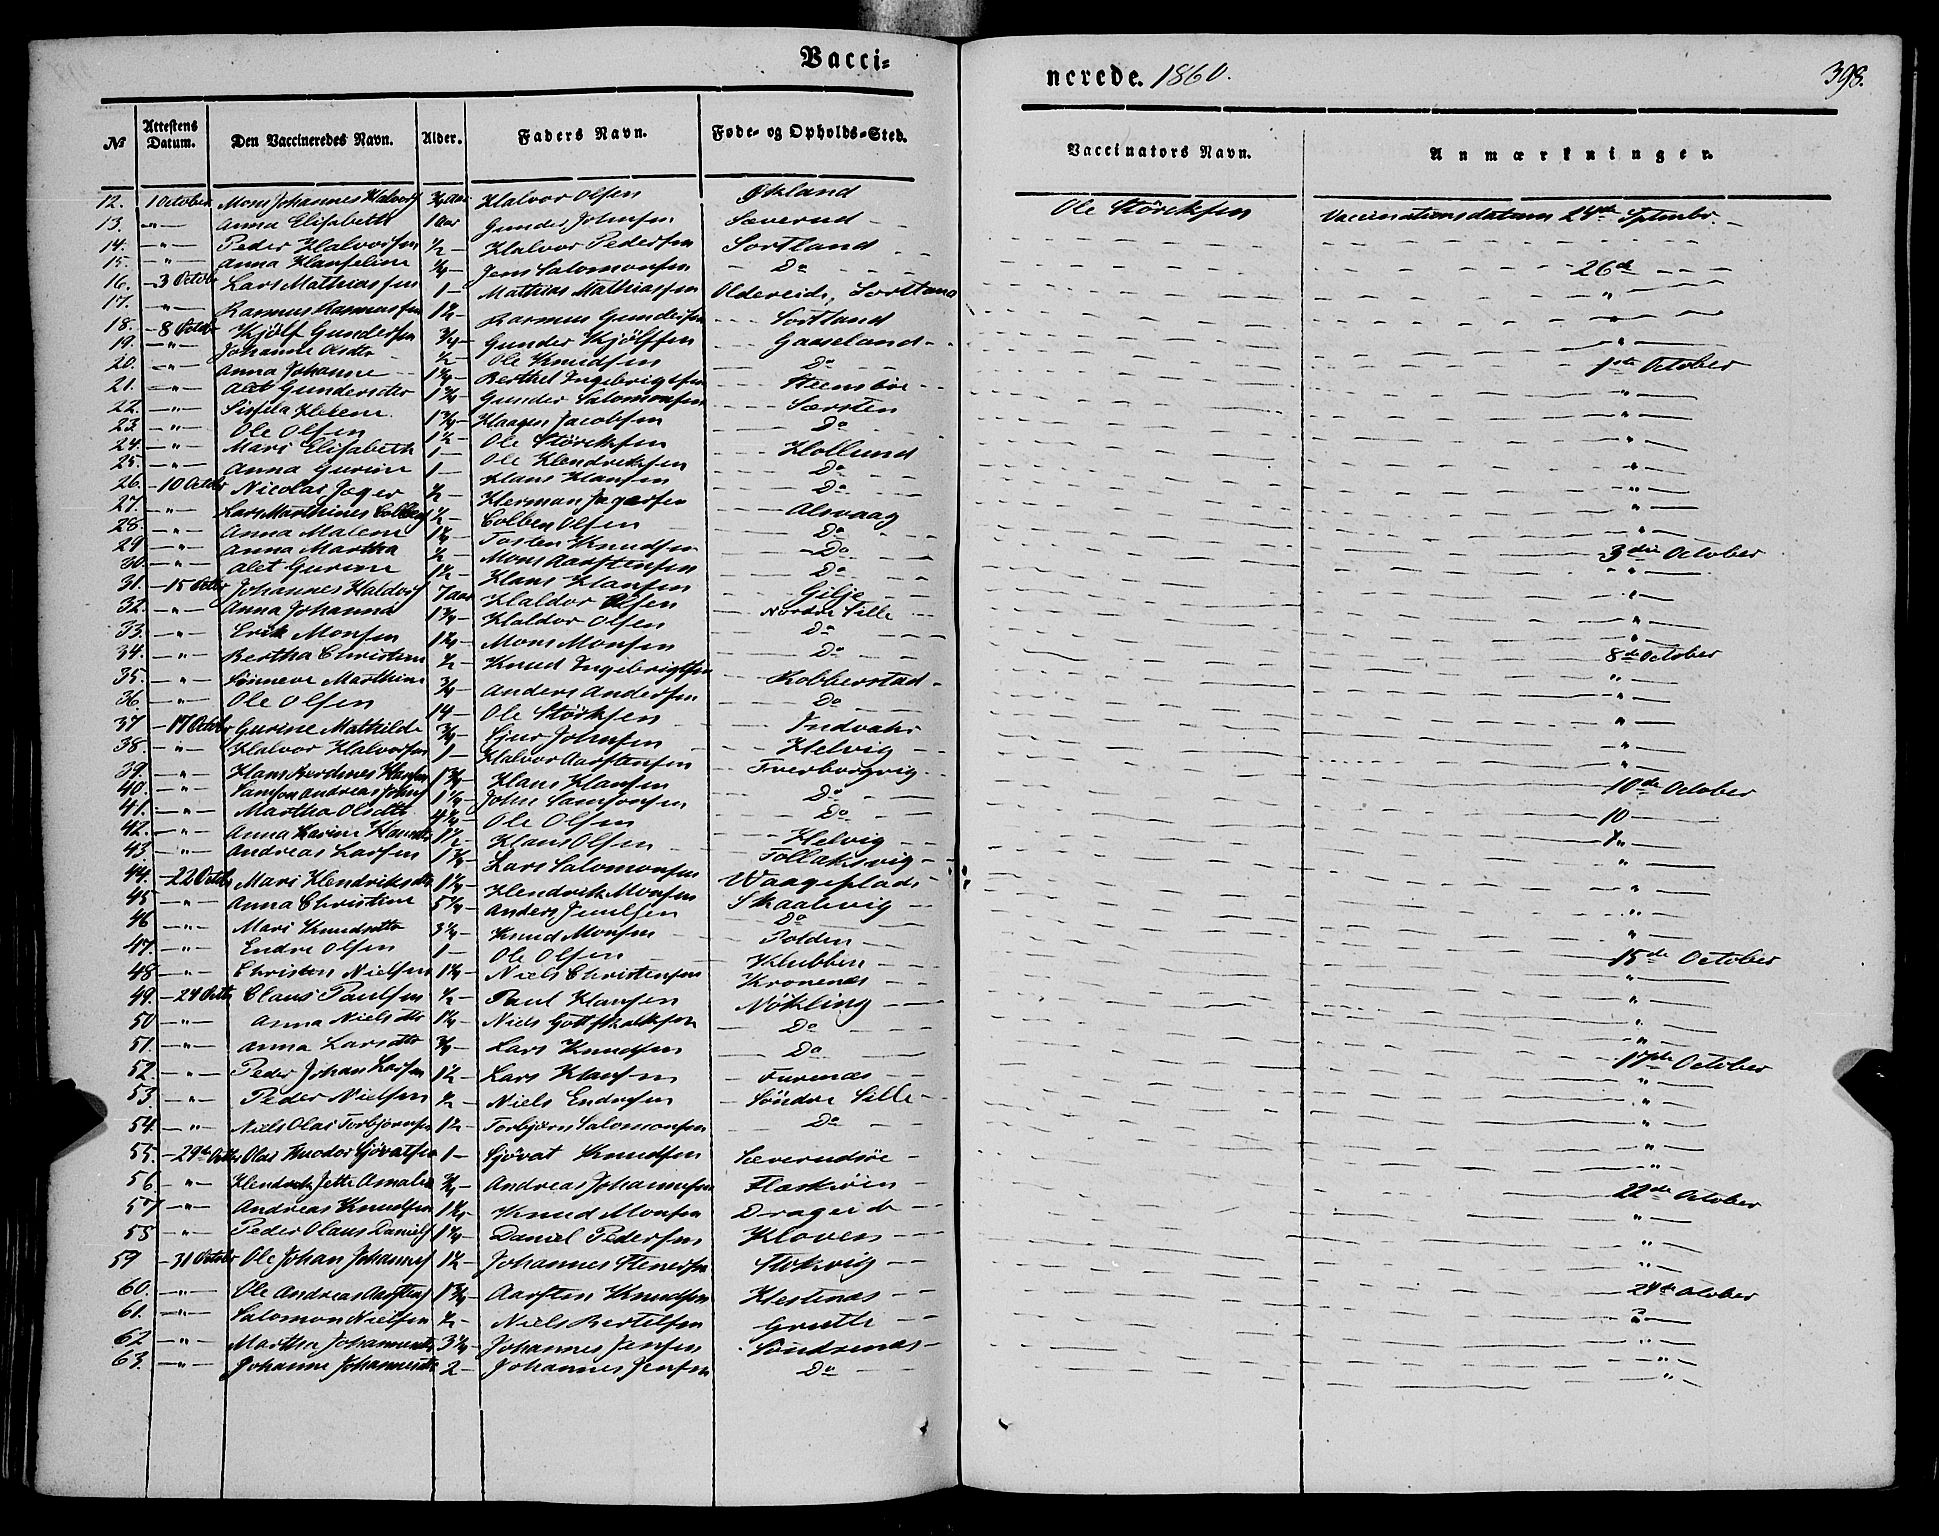 Vacci-
nerede. 1860.
398.
№ Attestens Datum. Den Vaccineredes Navn. Alder. Faders Navn. Føde- og Opholds-Sted. Vaccinators Navn. Anmærkninger.
12. 1 October Mons Johannes Halvors 3/4 Aar Halvor Olsen Økland Ole Störcksen Vaccinationsdatum 24de Septembr.
13. -"- Anna Elisabeth 1 aar Gunder Johnsen Sæverud
14. -"- Peder Halvorsen 1/2 - Halvor Pedersen Sortland
15. -"- Anna Hanseline 1/4 - Jens Salomonsen Do 26de
16. - 3 Octobr Lars Mathiassen 1 - Mathias Mathiassen Oldereide, Sortland "
17. -"- Rasmus Rasmussen 1 1/2 - Rasmus Gundersen Sortland "
18. - 8 Octobr Kjölf Gundersen 3/4 - Gunder Kjölfsen Gaaseland "
19. -"- Johanne Olsdtr 1/2 - Ole Knudsen Do 1ste October
20. -"- Anna Johanne 1 1/4 - Berthel Ingebrigtsen Steensbøe "
21. -"- Alet Gundersdtr 1 3/4 Gunder Salomonsen Særsten "
22. -"- Sissela Helene 1 3/4 - Haagen Jacobsen Do "
23. -"- Ole Olsen 1 1/2 - Ole Störcksen Hollund "
24. -"- Mari Elisabeth 1 - Ole Hendriksen Do "
25. -"- Anna Gurine 1 - Hans Hansen Do "
26. - 10 Octobr Nicolai Jæger 1/2 - Herman Jægersen Alsvaag "
27. -"- Lars Marthines Colbens 1/2 - Colben Olsen Do "
28. -"- Anna Malene 1 1/4 - Tosten Knudsen Do 3die October
29. -"- Anna Martha 1/2 - Mons Aarstensen Do "
30. -"- Alet Gurine 1 1/2 - Hans Hansen Gilje "
31. - 15 Octbr Johannes Haldors 7 aar Haldor Olsen Nordre Lille "
32. -"- Anna Johanna 1 3/4 - Haldor Olsen Do 8de October
33. -"- Erik Monsen 1 1/4 - Mons Monsen Do "
34. -"- Bertha Christine 1/2 - Knud Ingebrigtsen Kobberstad "
35. -"- Sönneve Marthine 3/4 - Anders Andersen Do "
36. -"- Ole Olsen 14 - Ole Störksen Indvahr "
37. - 17 Octobr Gurine Mathilde 3/4 - Sjur Johnsen Helvig "
38. -"- Halvor Halvorsen 1 - Halvor Aarstensen Tverborgvig 10de October
39. -"- Hans Hansen 1 3/4 - Hans Hansen Do 10
40. -"- Samson Andreas Johns 1 1/4 - John Samsonsen Do "
41. -"- Martha Olsdtr 4 1/2 - Ole Olsen Helvig "
42. -"- Anna Karine Hansdtr 1 1/2 - Hans Olsen Tollaksvig "
43. -"- Andreas Larsen 1 3/4 - Lars Salomonsen Waageplads "
44. - 22 Octobr Mari Hendriksdtr 1 1/4 - Hendrik Monsen Skaalevig "
45. -"- Anna Christine 5 1/4 - Anders Juulsen Do 15de October
46. -"- Mari Knudsdtr 3 1/2 - Knud Monsen Polden "
47. -"- Endre Olsen 1 - Ole Olsen Klubben "
48. -"- Christen Nielsen 1 1/4 - Niels Christensen Kronenæs "
49. - 24 Octbr Claus Paulsen 1/2 - Paul Hansen Nökling "
50. -"- Anna Nielsdtr 1 1/4 - Niels Gottskalksen Do 17de October
51. -"- Anna Larsdtr 3/4 - Lars Knudsen Do "
52. -"- Peder Johan Larsen 1 1/2 - Lars Hansen Furenæs "
53. -"- Peder Nielsen 1/2 - Niels Endresen Söndre Lille "
54. -"- Niels Olai Torbjörnsen 1 1/2 - Torbjörn Salomonsen Do "
55. - 29de Octbr Olai Theodor Sjövatsen 1 - Sjövat Knudsen Sæverudsöe "
56. -"- Hendrik Jette Amalia 3/4 - Andreas Johannesen Flasköen 22de October
57. -"- Andreas Knudsen 1 1/4 - Knud Monsen Drageide "
58. -"- Peder Olaus Daniels 1 1/4 - Daniel Pedersen Kloven "
59. - 31 October Ole Johan Johannes 1 1/2 - Johannes Stenersen Stokvig "
60. -"- Ole Andreas Aarstens 1 3/4 - Aarsten Knudsen Hestenæs 24de October
61. -"- Salomon Nielsen 1/2 - Niels Bertelsen Grutle "
62. -"- Martha Johannesdtr 3 1/4 - Johannes Jensen Söndrenæs "
63. -"- Johanne Johannesdtr 2 - Johannes Jensen Do "